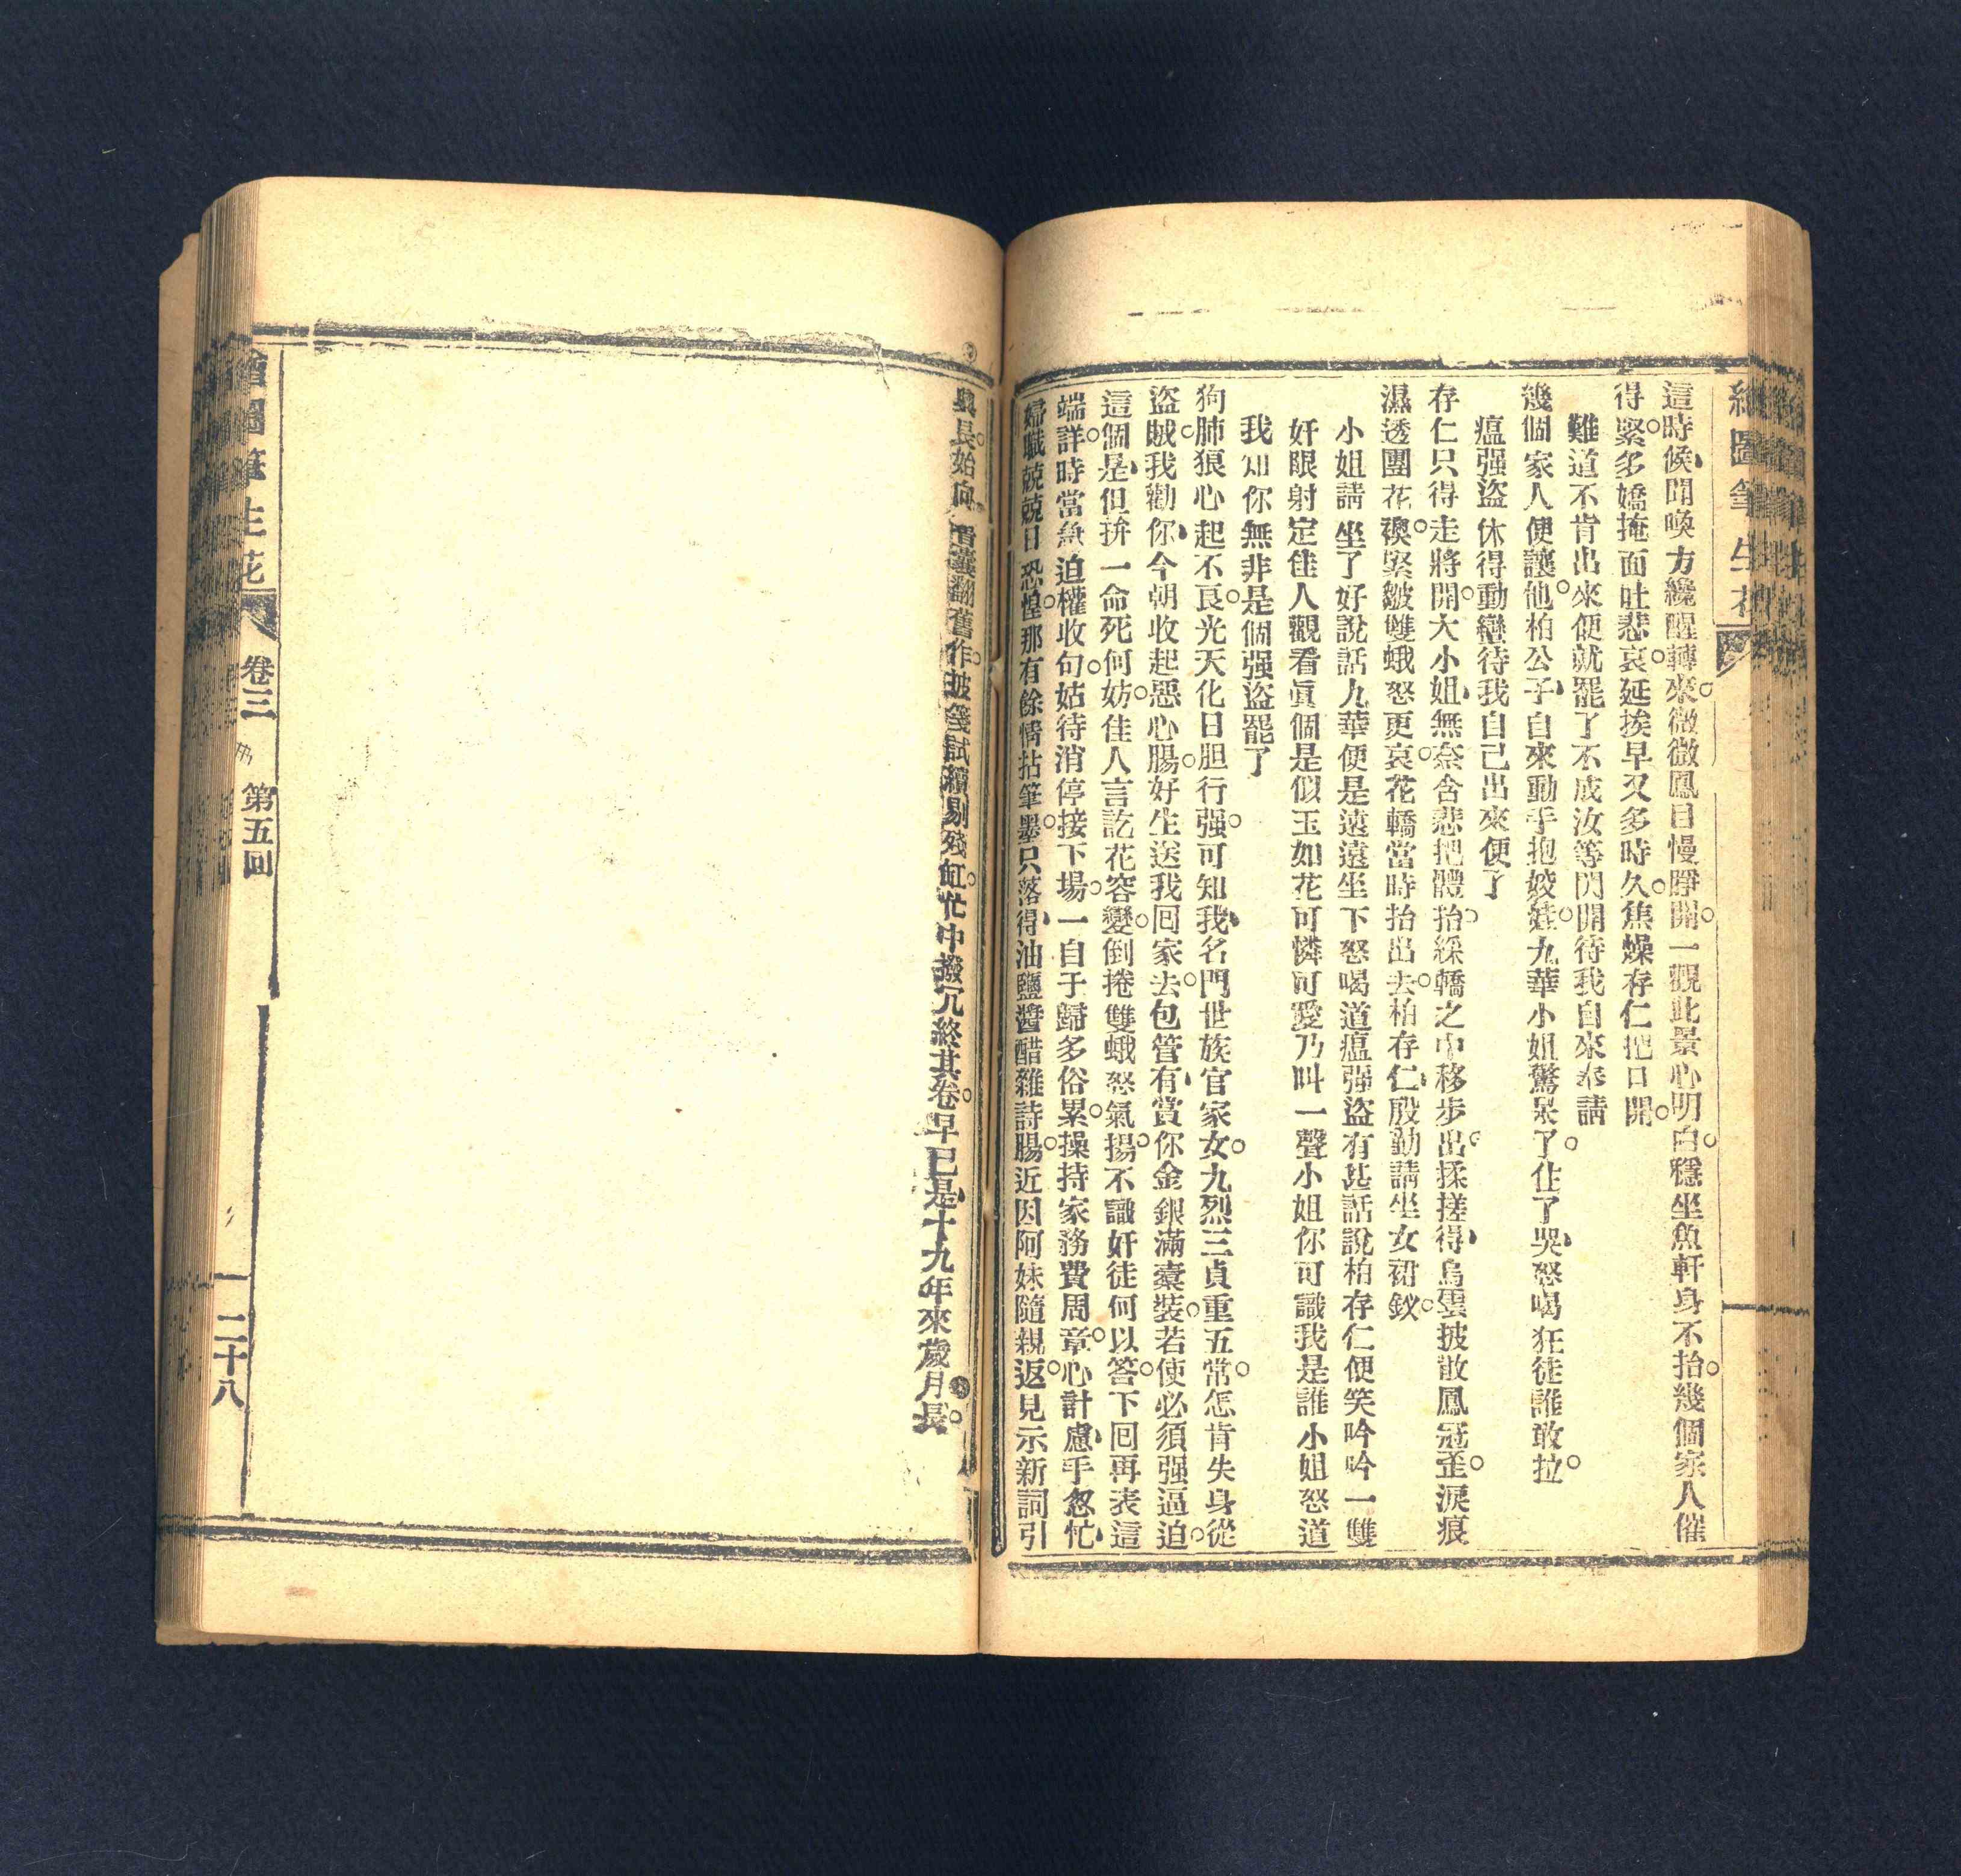 繪圖筆生花
這時候聞喚方纔醒轉來微微鳳目慢睜開一觀此景心明白穩坐魚軒身不抬幾個家人催
得緊多嬌掩面吐悲哀延挨早又多時久焦燥存仁把口開
難道不肯出來便就罷了不成汝等閃開待我自來奉請
幾個家人便讓他柏公子自來動手抱姣娃九華小姐驚呆了住了哭怒喝狂徒誰敢拉
瘟强盜休得動蠻待我自己出來便了
存仁只得走將開大小姐無奈含悲把體抬綵轎之中移步出揉搓得烏雲披散鳳冠歪淚痕
濕透團花襖緊皺雙蛾怒更哀花轎當時抬出去柏存仁殷勤請坐女裙釵
小姐請坐了好說話九華便是遠遠坐下怒喝道瘟强盜有甚話說柏存仁便笑吟吟一雙
奸眼射定佳人觀看眞個是似玉如花可憐可愛乃叫一聲小姐你可識我是誰小姐怒道
我知你無非是個强盜罷了
狗肺狼心起不良光天化日胆行强可知我名門世族官家女九烈三貞重五常怎肯失身從
盜賊我勸你今朝收起惡心腸好生送我回家去包管有賞你金銀滿橐裝若使必須强逼迫
這個是但拚一命死何妨佳人言訖花容變倒捲雙蛾怒氣揚不識奸徒何以答下回再表這
端詳時當急迫權收句姑待消停接下場一自于歸多俗累操持家務費周章心計慮手怱忙
婦職兢兢日恐惶那有餘情拈筆墨只落得油鹽醬醋雜詩腸近因阿妹隨親返見示新詞引
興長始向書囊翻舊作披箋試續剔殘缸忙中撥冗終其卷早已是十九年來歲月長
繪圖筆生花
卷三
第五回
二十八